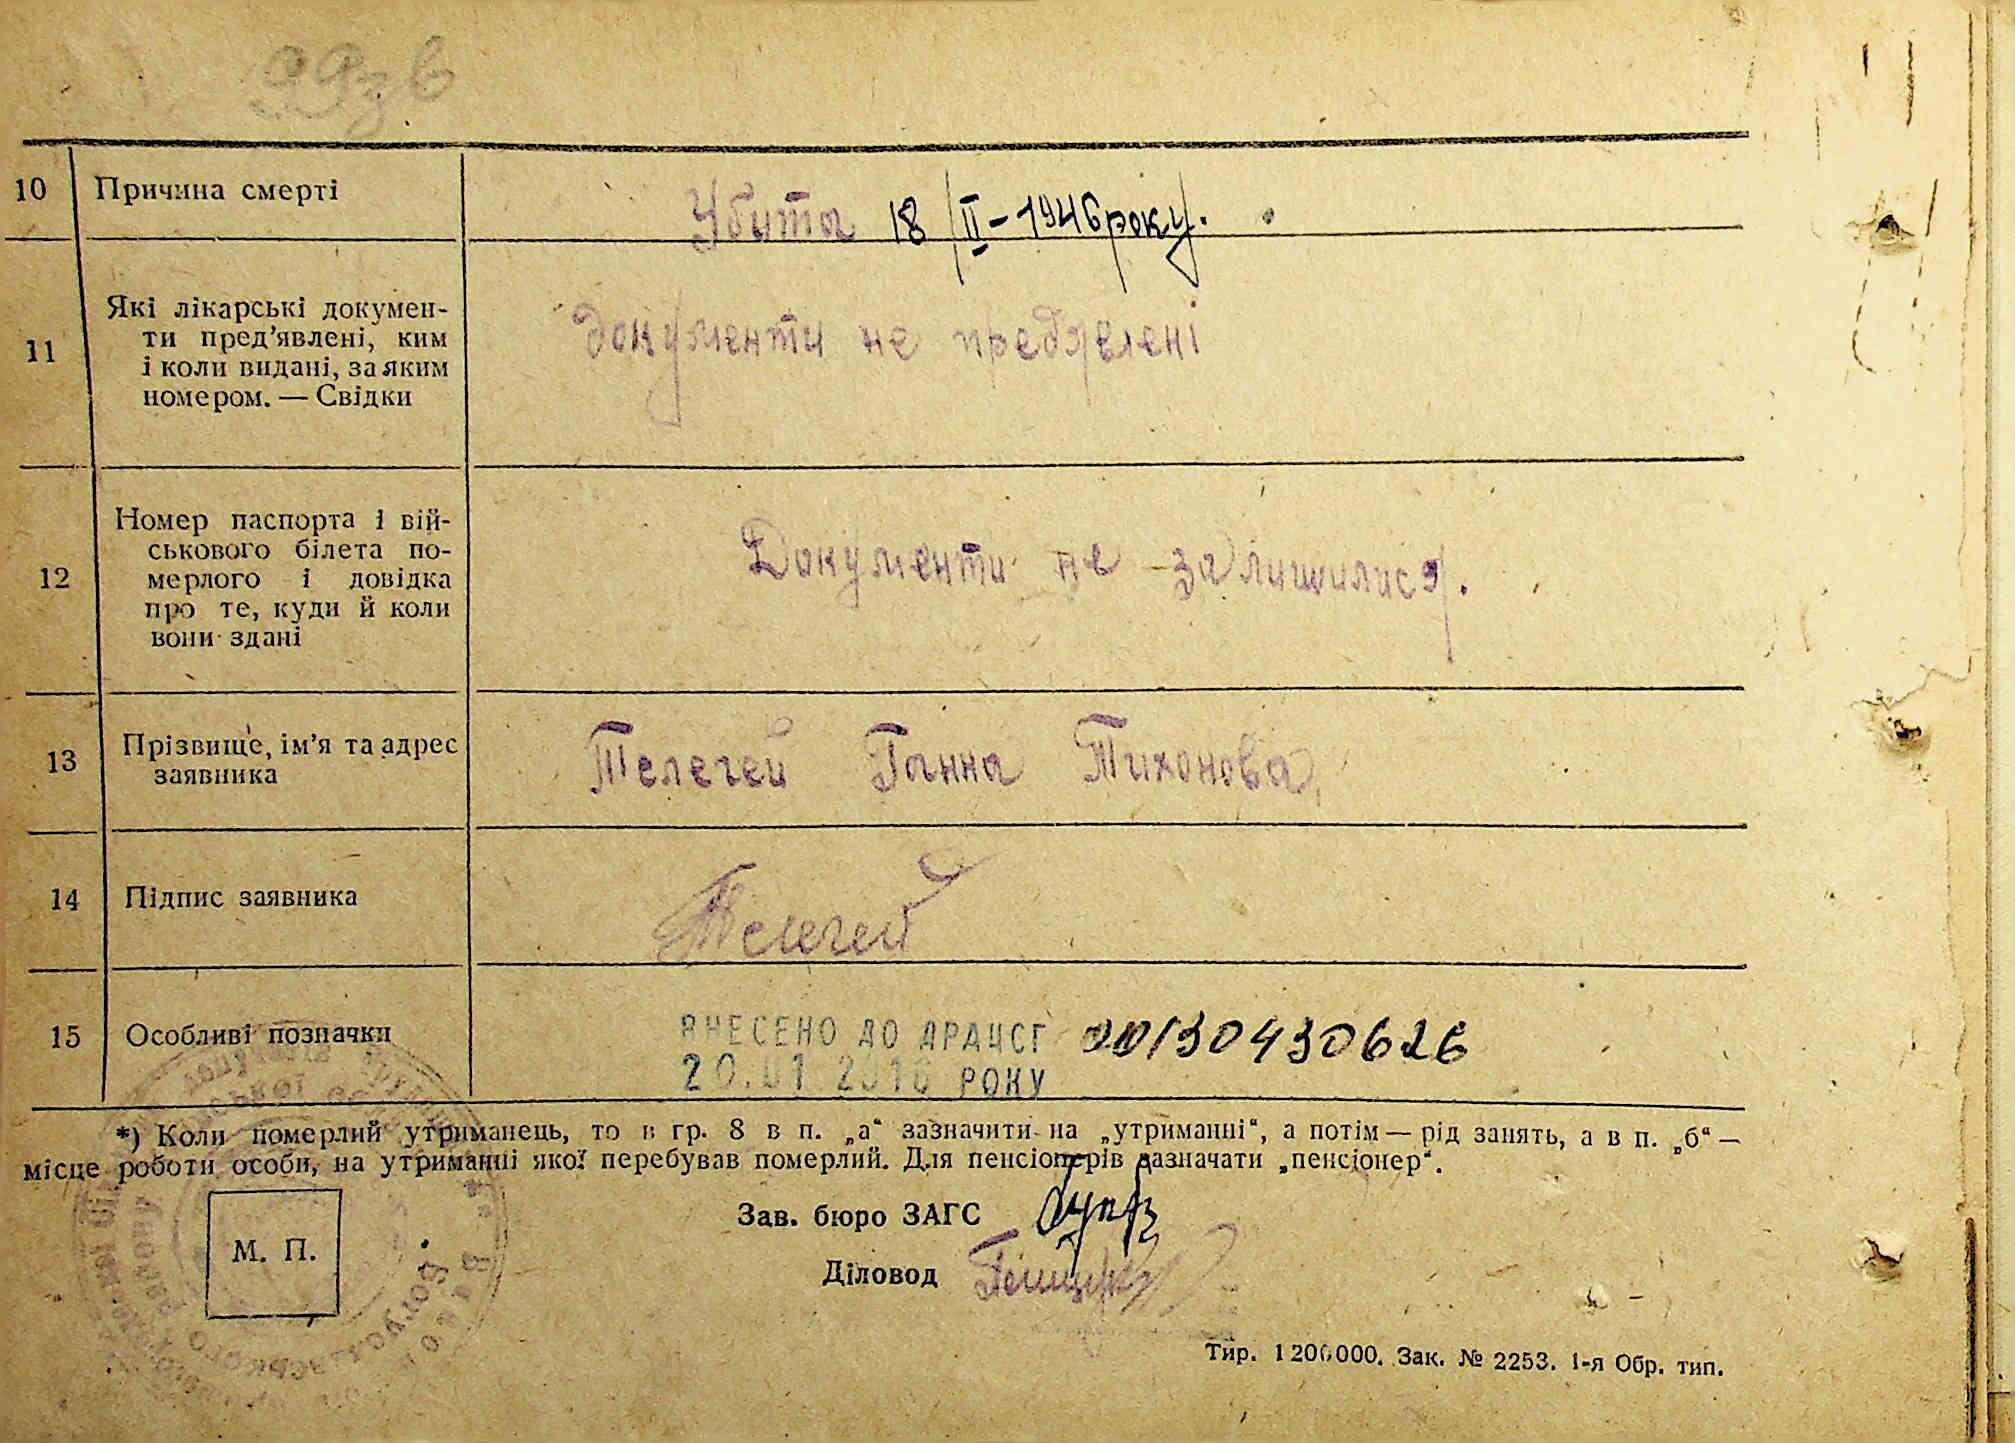 10 Причина смерті
Убита 18/II-1946 року.
11 Які лікарські докумен-
ти пред’явлені, ким
і коли видані, за яким
номером. — Свідки
документи не предявлені
12 Номер паспорта і вій-
ськового білета по-
мерлого і довідка
про те, куди й коли
вони здані
Документи не залишилися.
13 Прізвище, ім’я та адрес
заявника
Телегей Ганна Тихонова
14 Підпис заявника
Телегей
15 Особливі позначки
ВНЕСЕНО ДО ДРАЦСГ 00130430626
20.01 2016 РОКУ
*) Коли померлий утриманець, то в гр. 8 в п. „а“ зазначити на „утриманні“, а потім — рід занять, а в п. „б“ —
місце роботи особи, на утриманні якої перебував померлий. Для пенсіонерів зазначати „пенсіонер“.
Зав. бюро ЗАГС
М. П.
Діловод
Тир. 1 200 000. Зак. № 2253. 1-я Обр. тип.